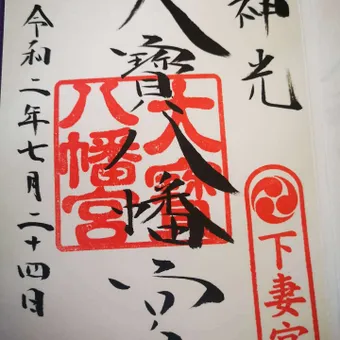 神光
大寶八幡宮
大寶
八幡宮
下妻
令和二年七月二十四日